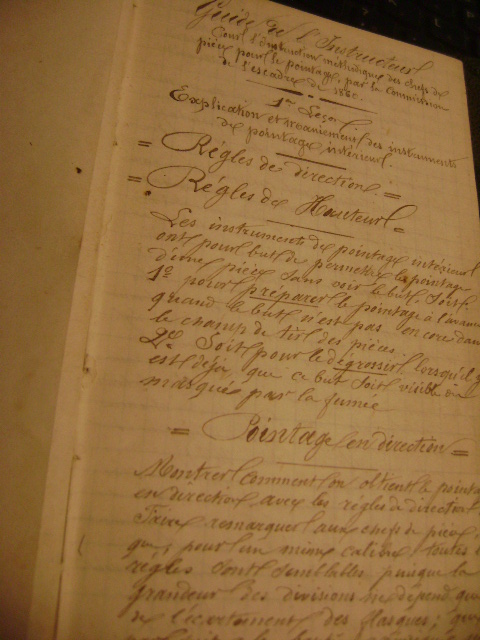 Guide de l'Instructeur
Cours d'Instruction méthodique des chefs de
pièce pour le pointage, par la Commission
de l'escadre de
1re Leçon
Explication et maniement des instruments
de pointage intérieur.
= Règles de direction. =
= Règles de Hauteur =
Les instruments de pointage intérieur
ont pour but de permettre le pointage
d'une pièce sans voir le but. Soit:
1o pour préparer le pointage à l'avance
quand le but n'est pas encore dans
le champs de tir des pièces.
2o Soit pour le dégrossir lorsqu'il y
est déjà, que ce but soit visible ou
masqué par la fumée
= Pointage en direction =
Montrer comment on obtient le pointage
en direction avec les règles de direction
Faire remarquer aux chefs de pièce
que, pour un même calibre toutes
règles sont semblables puisque la
grandeur des divisions ne dépend que
de l'écartement des flasques, que